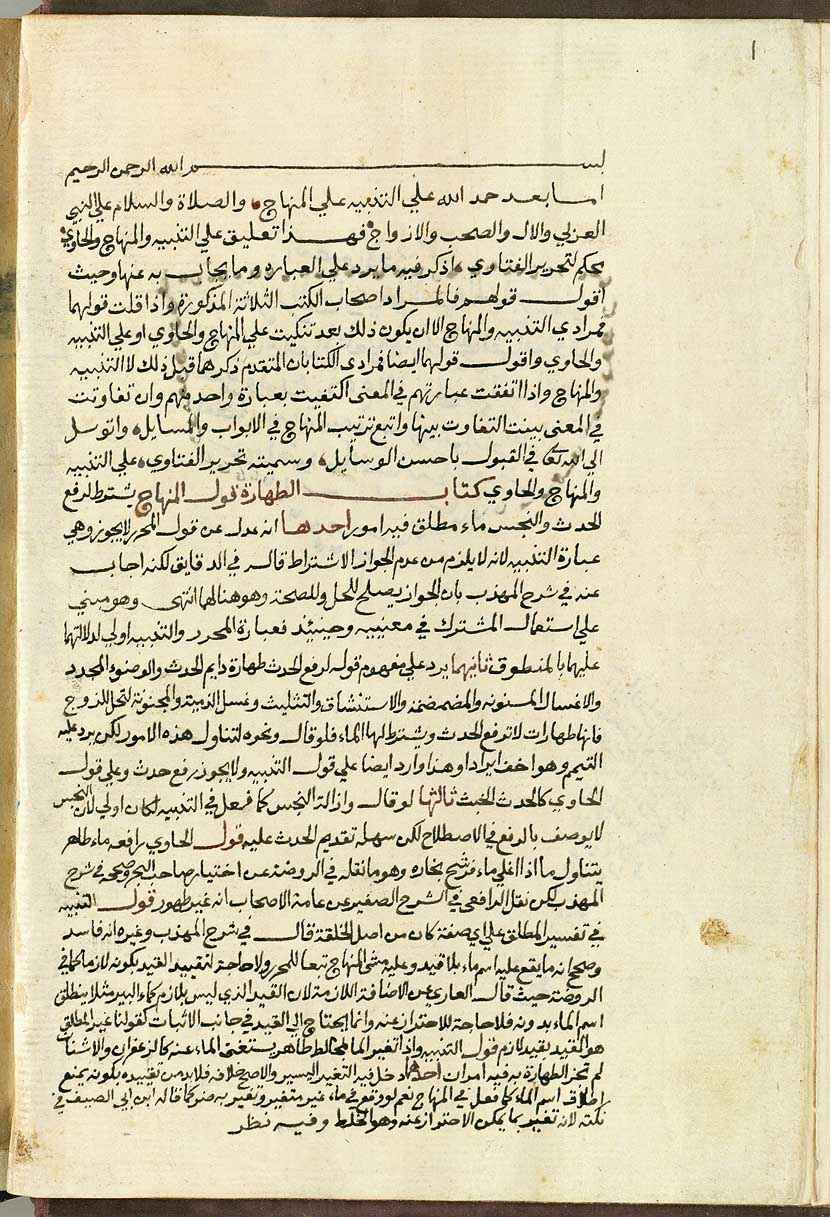 1
بسم الله الرحمن الرحيم
اما بعد حمد الله علي التنبيه علي المنهاج والصلاة والسلام علي النبي
العربي والال والصحب والازواج فهذا تعليق علي التنبيه والمنهاج والحاوي
محكم لتحرير الفتاوي اذكر فيه ما يرد علي العباره وما يجاب به عنها وحيث
اقول قولهم فالمراد اصحاب الكتب الثلاثة المذكورة واذا قلت قولهما
فمرادي التنبيه والمنهاج الا ان يكون ذلك بعد تنكيت علي المنهاج والحاوي او علي التنبيه
والحاوي واقول قولهما ايضا فمرادي الكتابان المتقدم ذكرهما قبل ذلك لا التنبيه
والمنهاج واذا اتفقت عبارتهم في المعنى اكتفيت بعبارة واحد منهم وان تفاوتت
في المعنى بينت التفاوت بينها واتبع ترتيب المنهاج في الابواب والمسايل واتوسل
الي الله تعالى في القبول باحسن الوسايل وسميته تحرير الفتاوي علي التنبيه
والمنهاج والحاوي كتاب الطهارة قول المنهاج يشترط لرفع
الحدث والنجس ماء مطلق فيه امور احدها انه عدل عن قول المحرر لا يجوز وهي
عبارة التنبيه لانه لا يلزم من عدم الجواز الاشتراط قاله في الدقايق لكنه اجاب
عنه في شرح المهذب بان الجواز يصلح للحل وللصحة وهو هنا لهما انتهى وهو مبني
علي استعمال المشترك في معنييه وحينيئد فعبارة المحرر والتنبيه اولي لدلالتهما
عليهما بالمنطوق ثانيهما يرد علي مفهوم قوله لرفع الحدث طهارة دايم الحدث والوضوء المجدد
والاغسال المسنونه والمضمضة والاستنشاق والتثليث وغسل الذمية والمجنونة لتحل للزوج
فانها طهارات لا ترفع الحدث ويشترط لها الماء فلو قال ونحوه لتناول هذه الامور لكن يرد عليه
التيمم وهو اخف ايرادا وهذا وارد ايضا علي قول التنبيه ولا يجوز رفع حدث وعلي قول
الحاوي كالحدث الخبث ثالثها لو قال وازالة النجس كما فعل في التنبيه لكان اولي لان النجس
لا يوصف بالرفع في الاصطلاح لكن سهله تقديم الحدث عليه قول الحاوي رافعه ماء طاهر
يتناول ما اذا اغلي ماء فرشح بخاره وهو ما نقله في الروضة عن اختيار صاحب البحر وصححه في شرح
المهذب لكن نقل الرافعي في الشرح الصغير عن عامة الاصحاب انه غير طهور قول التنبيه
في تفسير المطلق علي اي صفة كان من اصل الخلقة قال في شرح المهذب وغيره انه فاسد
وصحح انه ما يقع عليه اسم ماء بلا قيد وعليه مشى المنهاج تبعا للمحرر ولا حاجة لتقييد القيد بكونه لازما كما في
الروضة حيث قال العاري عن الاضافة اللازمة لان القيد الذي ليس بلازم كماء البير مثلا ينطلق
اسم الماء بدونه فلا حاجة للاحتراز عنه وانما يحتاج الي القيد في جانب الاثبات كقولنا غير المطلق
هو المقيد بقيد لازم قول التنبيه واذا تغير الماء بمخالط طاهر يستغنى الماء عنه كالزعفران والاشنان
لم تجز الطهارة به فيه امران احدهما دخل فيه التغير اليسير والاصح خلافه فلا بد من تقييده بكونه يمنع
اطلاق اسم الماء كما فعل في المنهاج نعم لو وقع في ماء غير متغير وتغير به ضر كما قاله ابن ابي الصيف في
نكته لانه تغير بما يمكن الاحتراز عنه وهو الخلط وفيه نظر